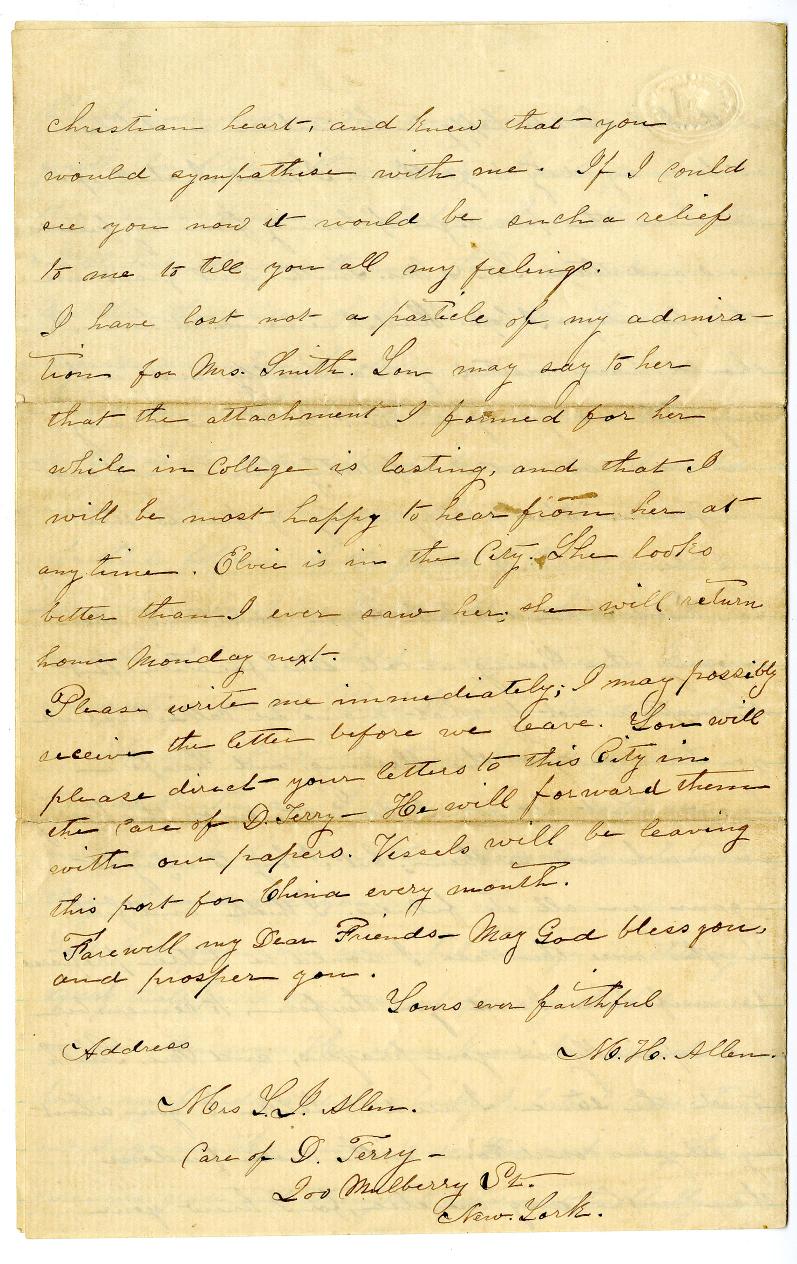 christian heart, and knew that you
would sympathise with me. If I could
see you now it would be such a relief
to me to tell you all my feelings.
I have lost not a particle of my admira-
tion for Mrs. Smith. You may say to her
that the attachment I formed for her
while in College is lasting, and that I
will be most happy to hear from her at
any time. Elvie is in the City. She looks
better than I ever saw her, she will return
home Monday next.
Please write me immediately; I may possibly
receive the letter before we leave. You will
please direct your letters to this City in
the care of D. Terry- He will forward them
with our papers. Vessels will be leaving
this port for China every month.
Farewell my Dear Friends- May God bless you,
and prosper you.
Yours ever faithful
M. H. Allen.
Address
Mrs Y. J. Allen.
Care of D. Terry-
200 Mulberry St.-
New. York.